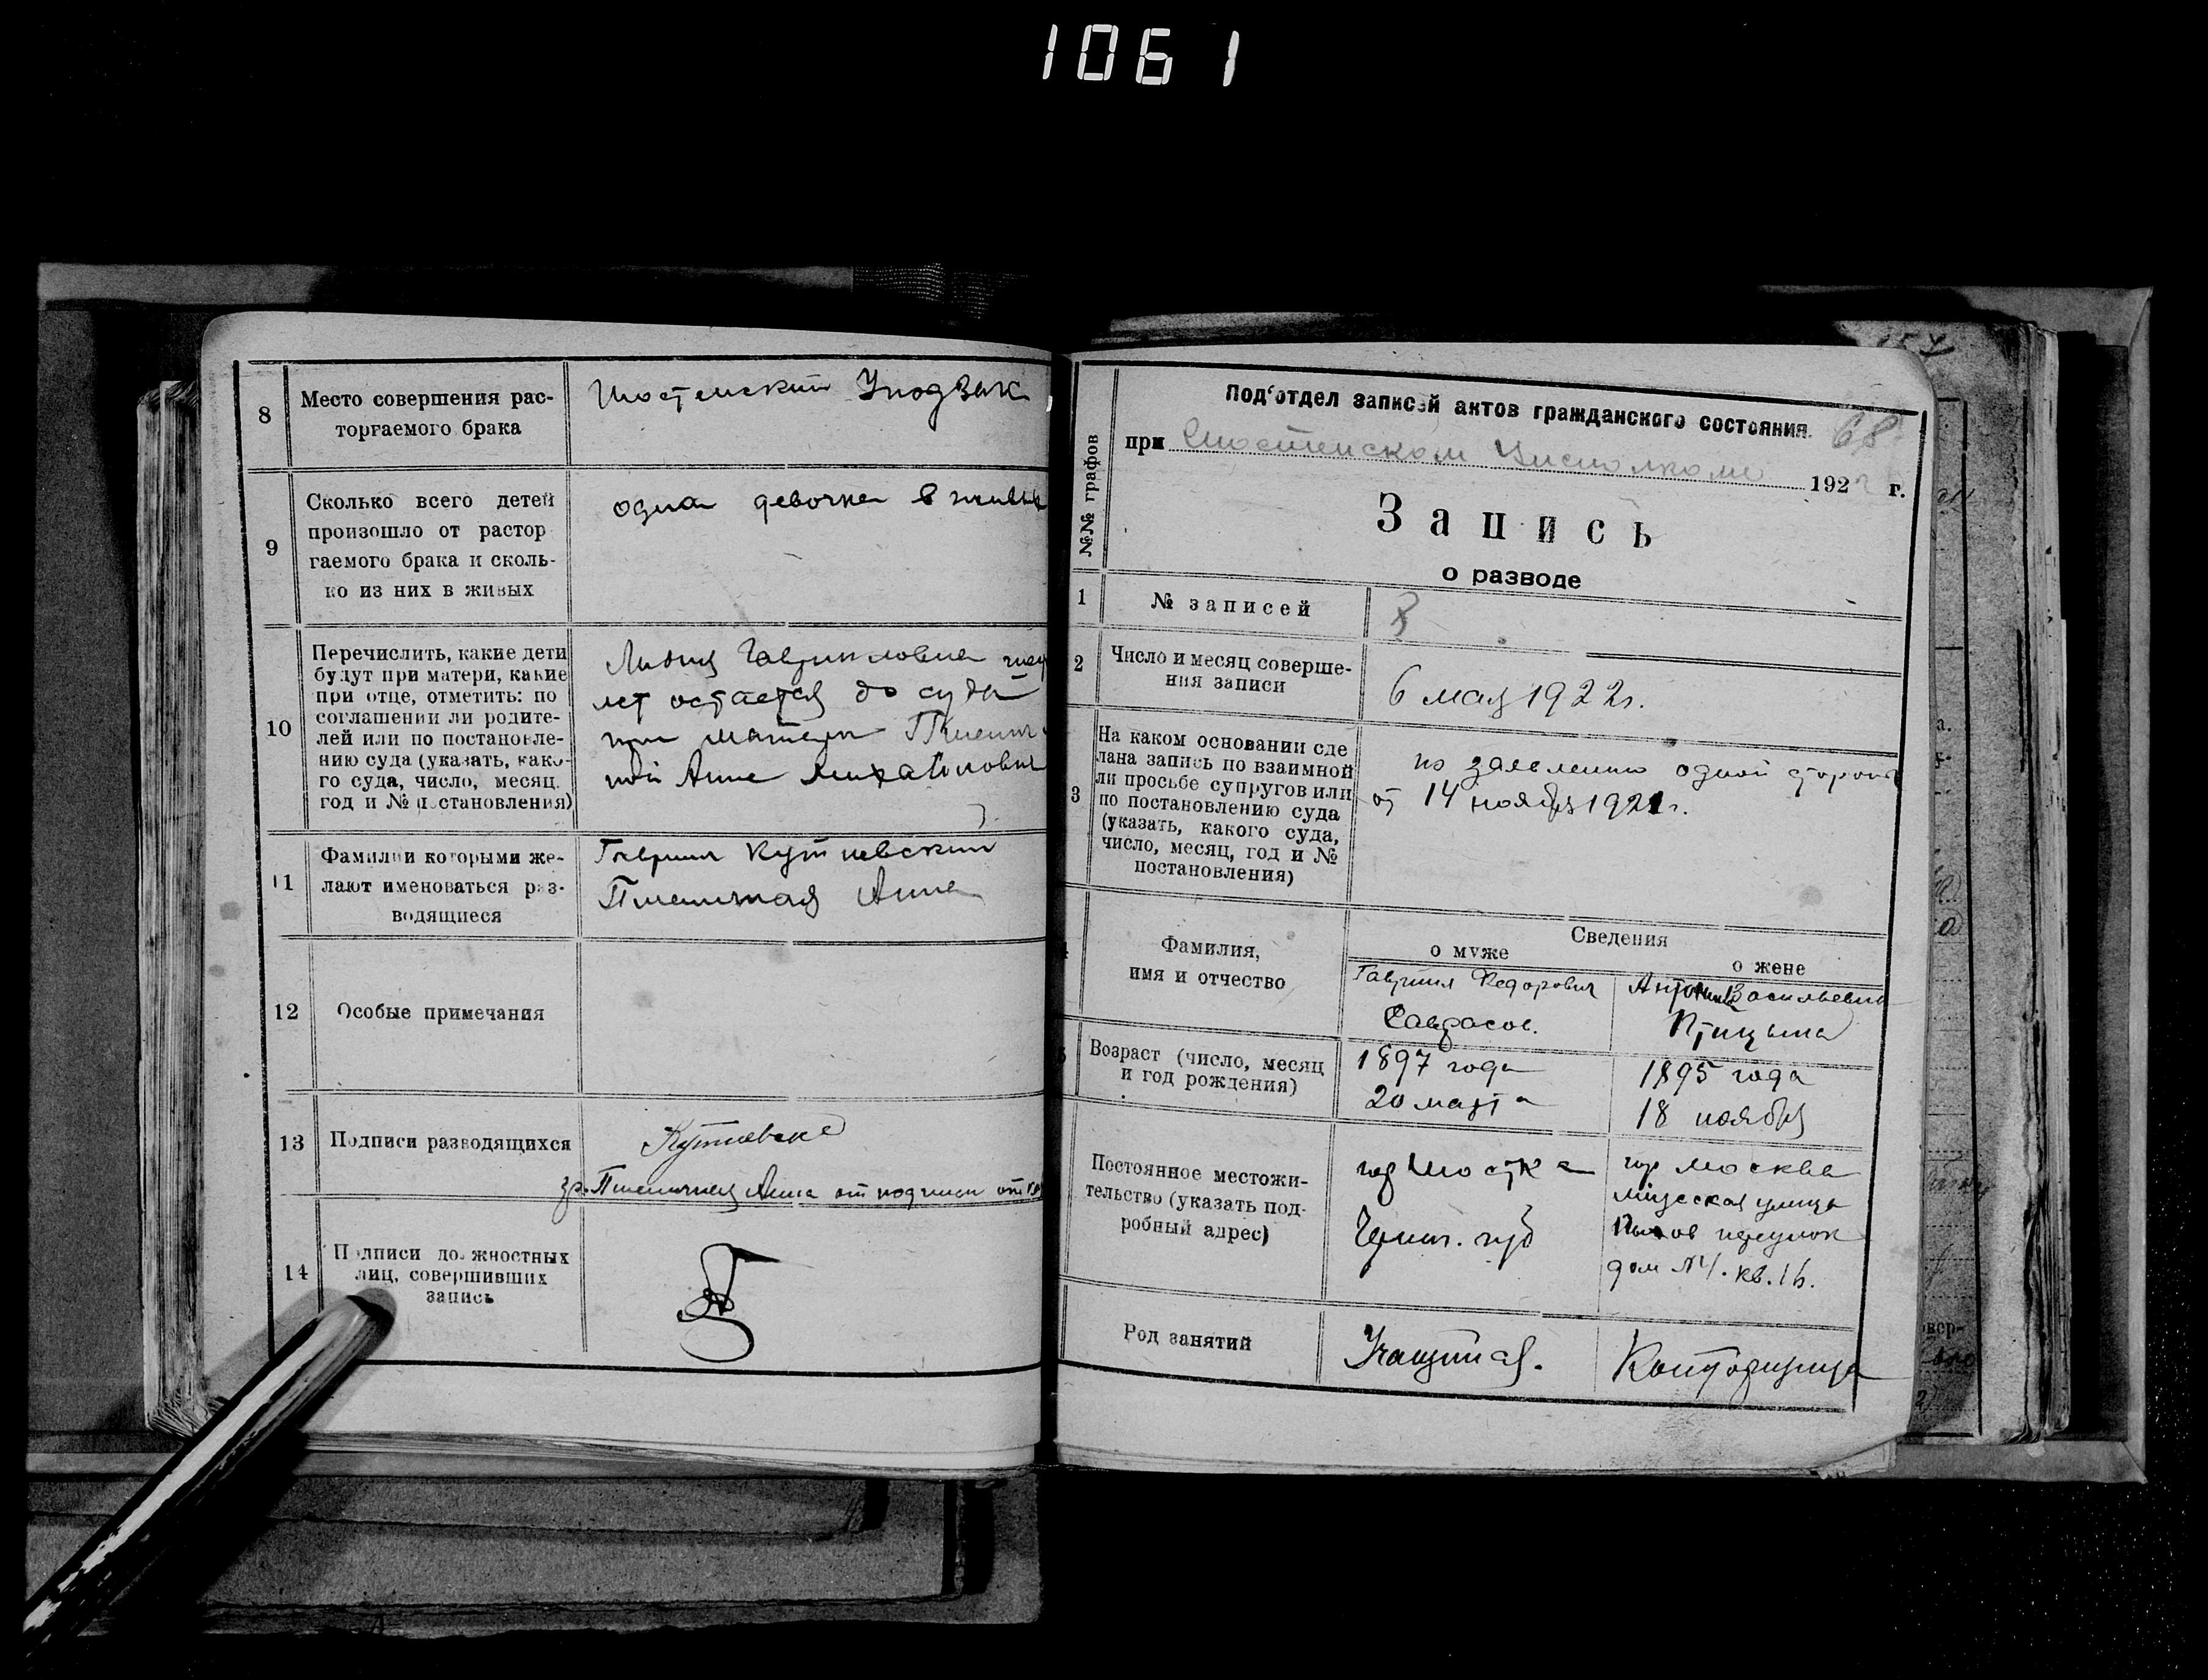 1061
8
Место совершения рас-
торгаемого брака
Шостенский
9
Сколько всего детей
произошло от растор
гаемого брака и сколь-
ко из них в живых
одна девочка в живых
10
Перечислить, какие дети
будут при матери, какие
при отце, отметить: по
соглашении ли родите-
лей или по постановле-
нию суда (указать, како-
го суда, число, месяц.
год и № постановления)
Лидия Гавриловна
лет остается до суда
при матери Пшенич
ной Анне Михайловне
11
Фамилии которыми же-
лают именоваться раз-
водящиеся
Гавриил Кутневский
Пшеничная Анна
12
Особые примечания
13
Подписи разводящихся
гр. Пшеничная Анна от подписи
14
Подписи должностных
лиц, совершивших
запись
№№ графов
Под'отдел записей актов гражданского состояния.
68
при Шостенском Уисполкоме 1922 г.
Запись
о разводе
1
№ записей
8
2
Число и месяц соверше-
ния записи
6 мая 1922г.
3
На каком основании сде
лана запись по взаимной
ли просьбе супругов или
по постановлению суда
(указать, какого суда,
число, месяц, год и №
постановления)
по заявлению одной стороны
от 14 ноября 1921г.
Фамилия,
имя и отчество
Сведения
о муже
о жене
Гавриил Федорович
Саврасов.
Антонина Васильевна
Птицына
Возраст (число, месяц
и год рождения)
1897 года
20 марта
1895 года
18 ноября
Постоянное местожи-
тельство (указать под-
робный адрес)
гор Шостка
Черниг. губ
гор Москва
улица
переулок
дом №4. кв. 16.
Род занятий
Учащийся.
Конторщица